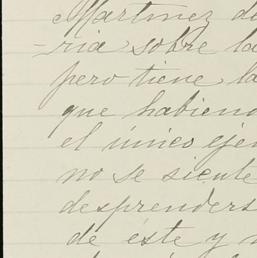 Martinez de
-ria sobre la
pero tiene la
que habiend
el único eje
no se siente
desprenders
de éste y